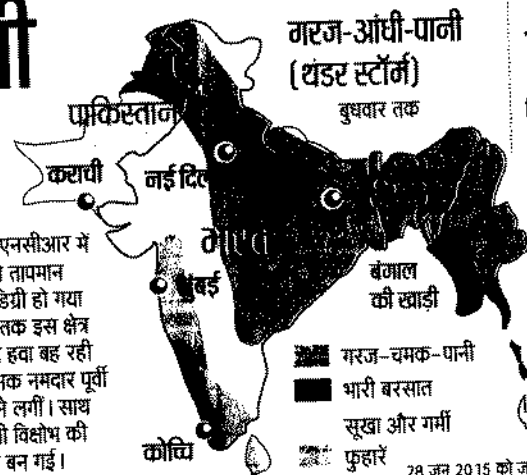 ी
गरज-आंधी-पानी
(थंडर स्टॉर्म)
बुधवार तक
पाकिस्तान
कराची
नई दिल
भारत
मुंबई
बंगाल
की खाड़ी
कोच्चि
एनसीआर में
तापमान
डिग्री हो गया
तक इस क्षेत्र
हवा बह रही
नमदार पूर्वी
लगीं। साथ
विक्षोभ की
बन गई।
गरज-चमक-पानी
भारी बरसात
सूखा और गर्मी
फुहारें
28 जून 2015 को